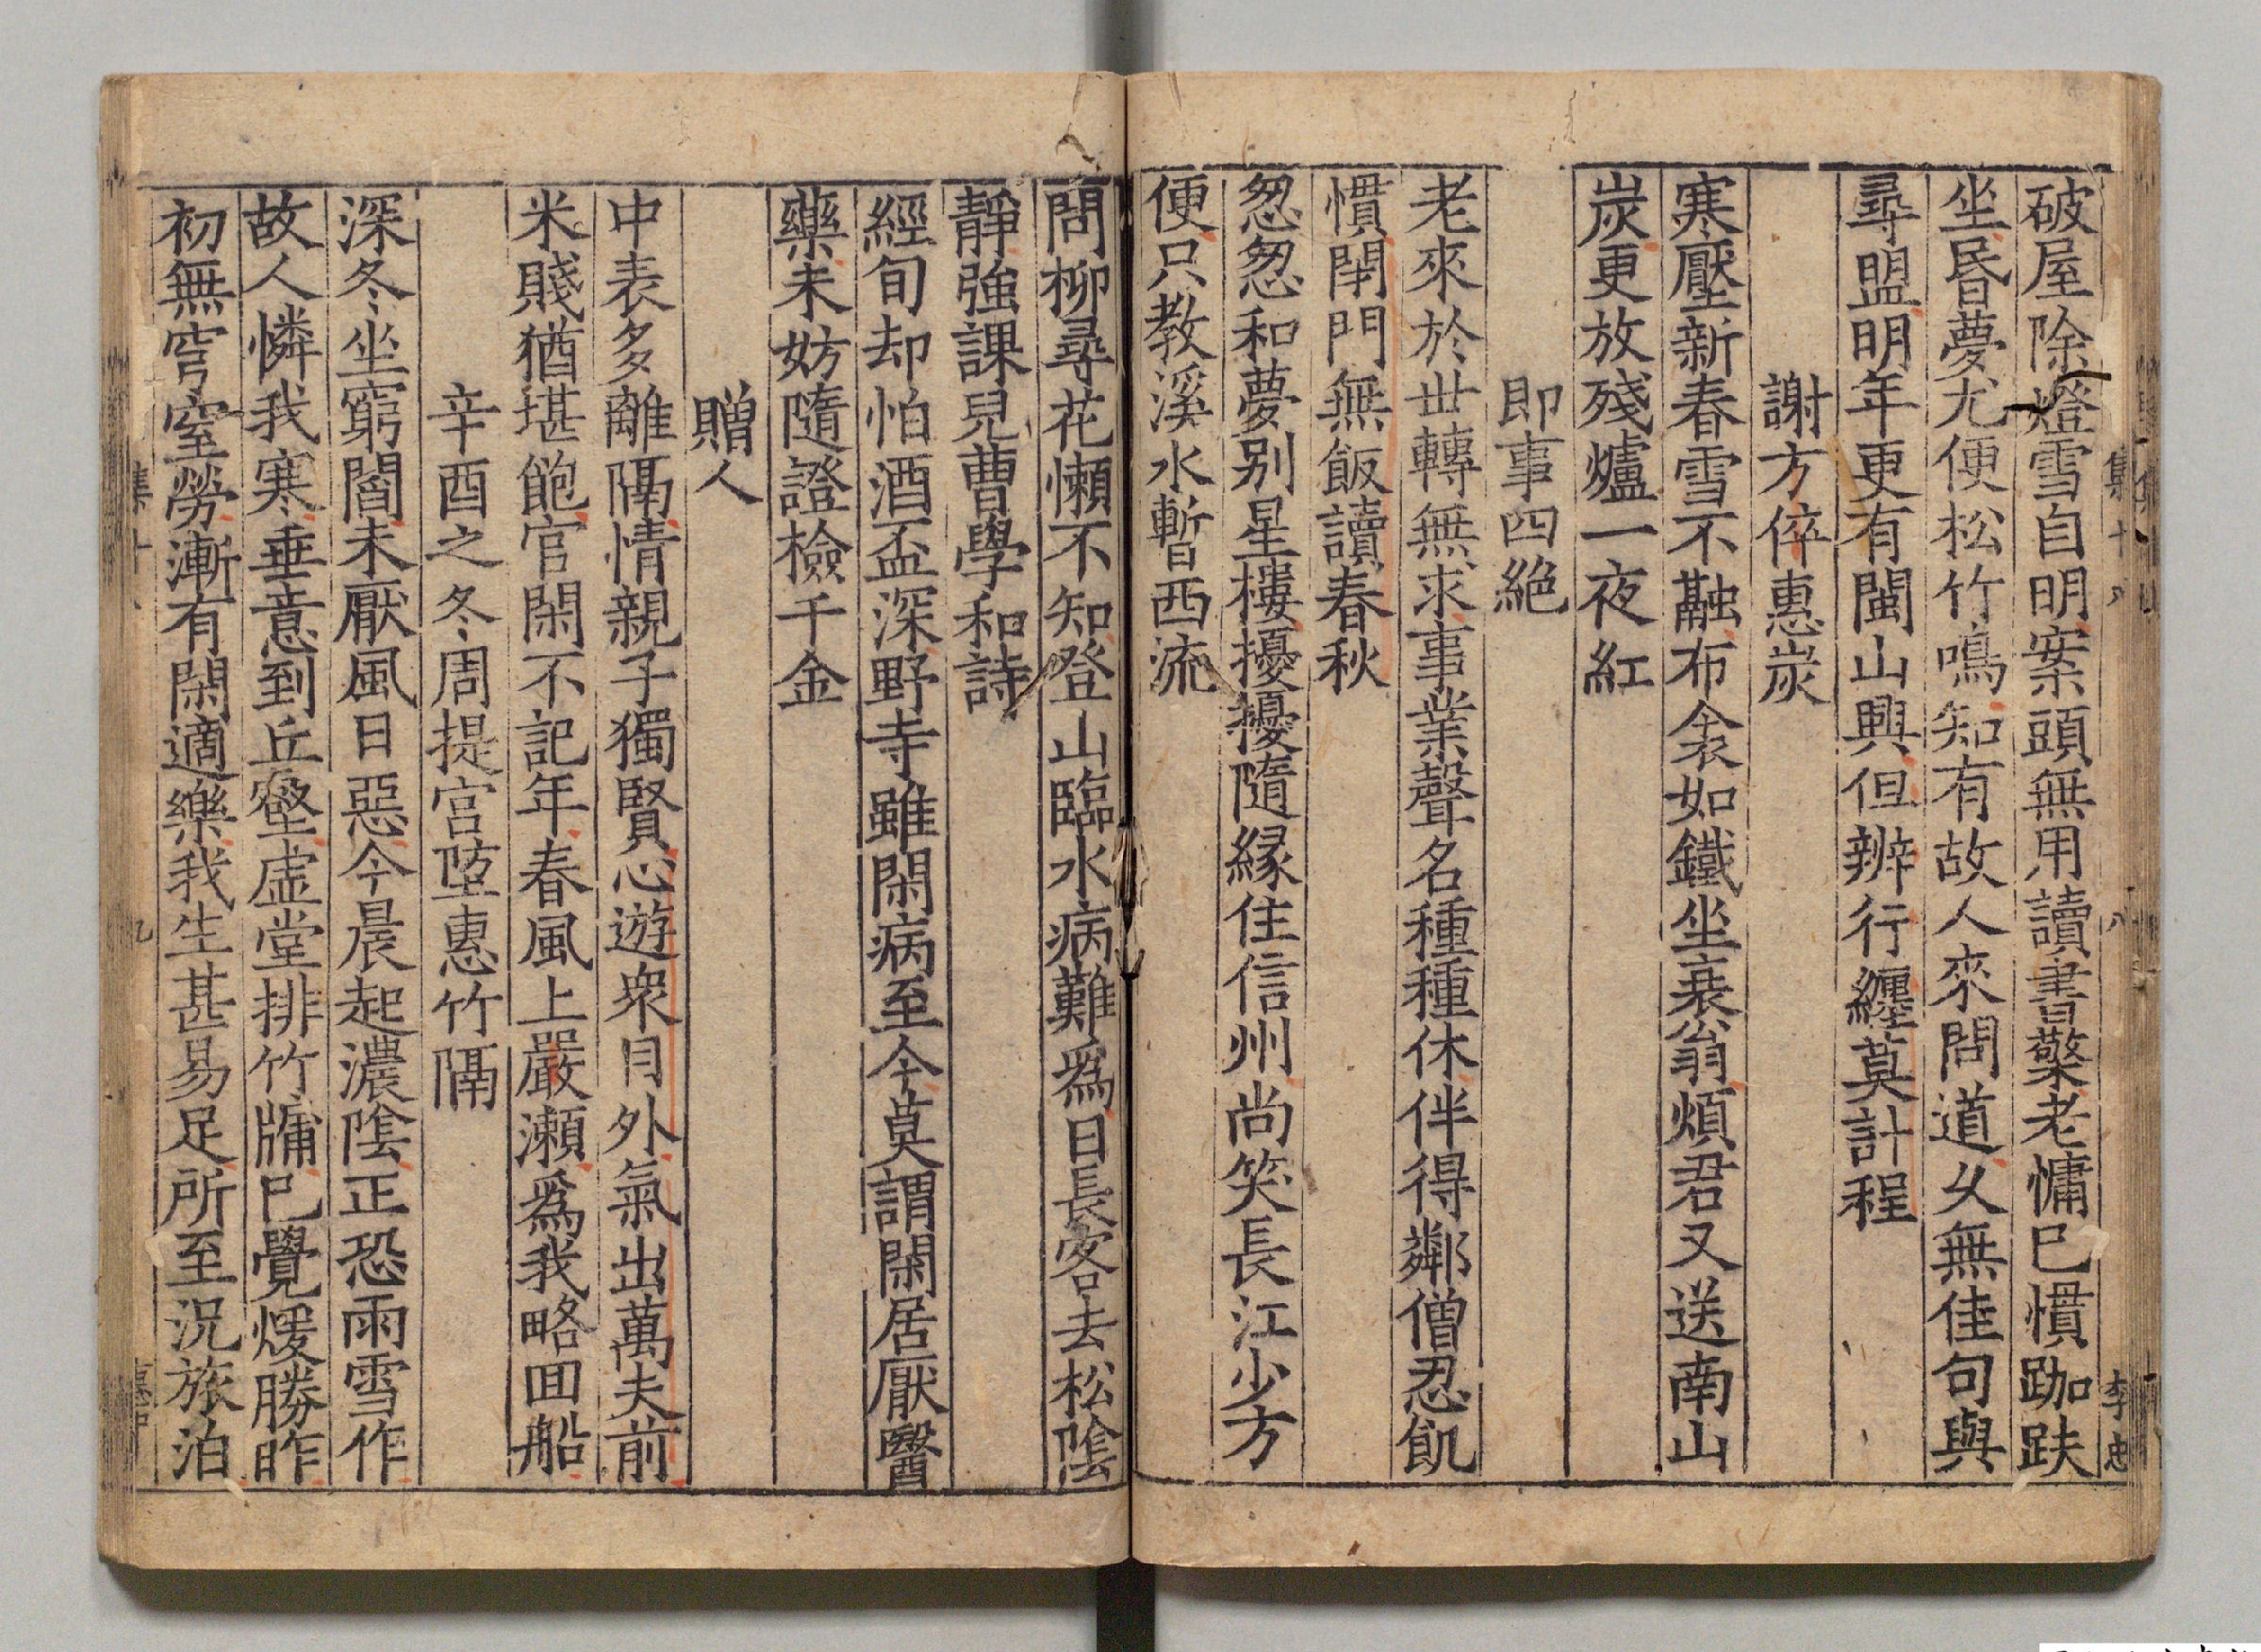 破屋除燈雪自明案頭無用讀書檠老慵已慣跏趺
坐昏夢尤便松竹鳴知有故人來問道乆無佳句與
尋盟明年更有閩山興但辦行纏莫計程
謝方倅惠炭
寒壓新春雪不融布衾如鐵坐衰翁煩君又送南山
炭更放殘爐一夜紅
即事四絶
老來於世轉無求事業聲名種種休伴得鄰僧忍飢
慣閉門無飯讀春秋
怱怱和夢别星樓擾擾隨縁住信州尚笑長江少方
便只教溪水暫西流
問柳尋花懶不知登山臨水病難爲日長客去松陰
靜強課兒曹學和詩
經旬却怕酒盃深野寺雖閑病至今莫謂閑居厭醫
藥未妨隨證檢千金
贈人
中表多離隔情親子獨賢心遊衆目外氣出萬夫前
米賤猶堪飽官閑不記年春風上嚴瀬爲我略回船
辛酉之冬周提宫墍惠竹隔
深冬坐窮閻未厭風日惡今晨起濃陰正恐雨雪作
故人憐我寒垂意到丘壑虚堂排竹牗已覺煖勝昨
初無穹窒勞漸有閑適樂我生甚易足所至況旅泊
集十八
八
李忠
九